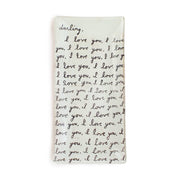 darling,
I love you, I love
you, I love you, I love
you, I love you, I love
you, I love you, I love
you, I love you, I love
you, I love you, I love
I love you, I love you
I love you, I love you
I love you, I love you
I love you, I love you
I love you, I love you
I love you, I love you